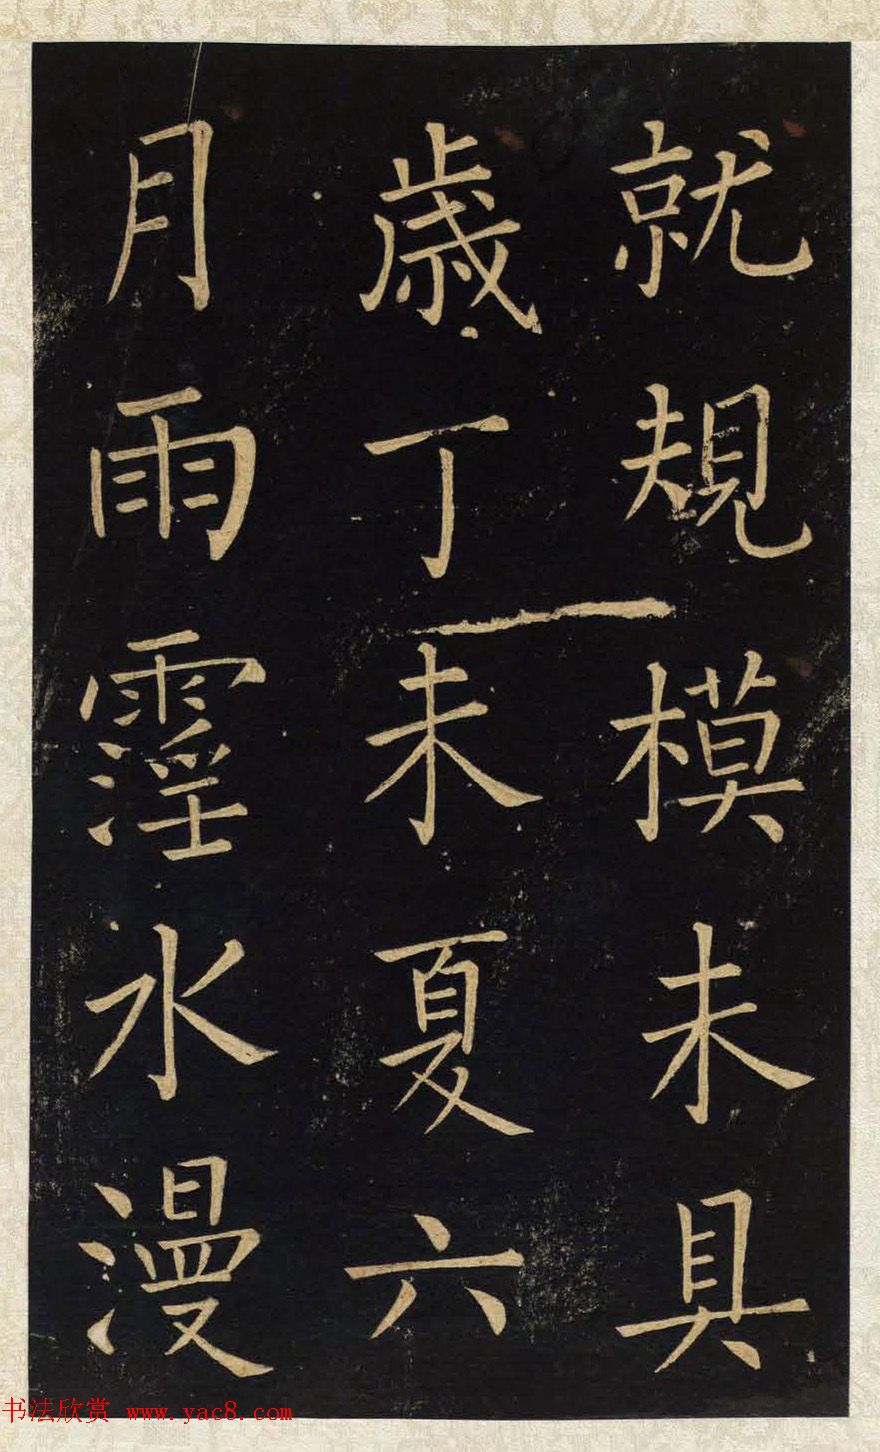 就規模未具
歳丁未夏六
月雨霪水漫
书法欣赏 www.yac8.com